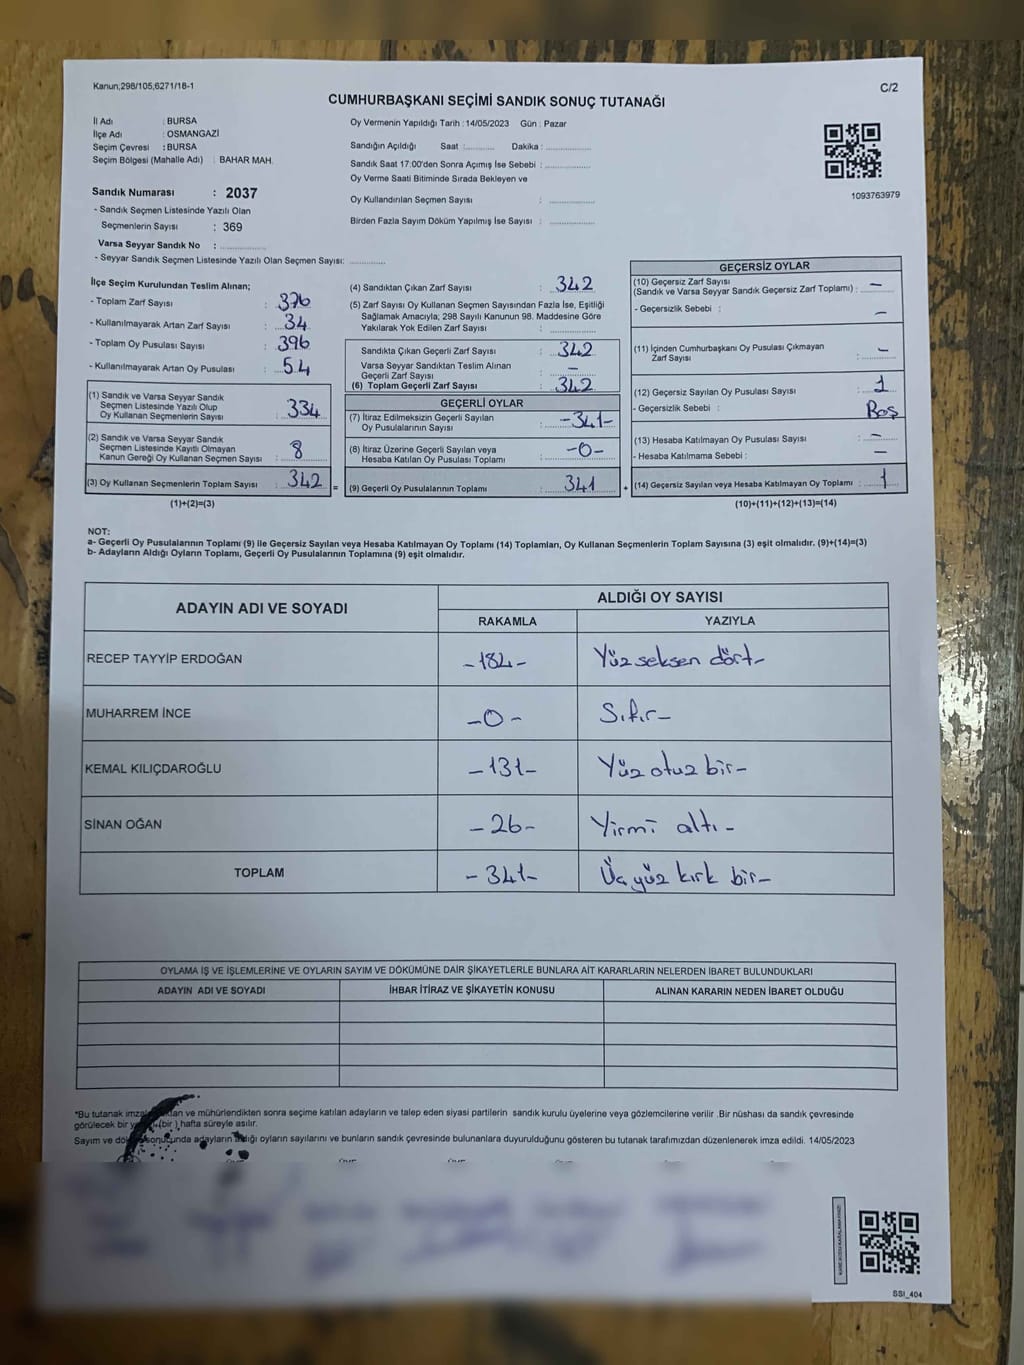 Kanun;298/105,6271/18-1
C/2
CUMHURBAŞKANI SEÇİMİ SANDIK SONUÇ TUTANAĞI
İl Adı : BURSA
İlçe Adı : OSMANGAZİ
Seçim Çevresi : BURSA
Seçim Bölgesi (Mahalle Adı) : BAHAR MAH.
Sandık Numarası : 2037
- Sandık Seçmen Listesinde Yazılı Olan
Seçmenlerin Sayısı : 369
Varsa Seyyar Sandık No :
- Seyyar Sandık Seçmen Listesinde Yazılı Olan Seçmen Sayısı:
Oy Vermenin Yapıldığı Tarih : 14/05/2023 Gün : Pazar
Sandığın Açıldığı Saat : Dakika :
Sandık Saat 17:00'den Sonra Açımış İse Sebebi :
Oy Verme Saati Bitiminde Sırada Bekleyen ve
Oy Kullandırılan Seçmen Sayısı :
Birden Fazla Sayım Döküm Yapılmış İse Sayısı :
1093763979
İlçe Seçim Kurulundan Teslim Alınan;
- Toplam Zarf Sayısı : 376
- Kullanılmayarak Artan Zarf Sayısı : 34
- Toplam Oy Pusulası Sayısı : 396
- Kullanılmayarak Artan Oy Pusulası : 54
(1) Sandık ve Varsa Seyyar Sandık
Seçmen Listesinde Yazılı Olup
Oy Kullanan Seçmenlerin Sayısı : 334
(2) Sandık ve Varsa Seyyar Sandık
Seçmen Listesinde Kayıtlı Olmayan
Kanun Gereği Oy Kullanan Seçmen Sayısı : 8
(3) Oy Kullanan Seçmenlerin Toplam Sayısı : 342
(1)+(2)=(3)
(4) Sandıktan Çıkan Zarf Sayısı : 342
(5) Zarf Sayısı Oy Kullanan Seçmen Sayısından Fazla İse, Eşitliği
Sağlamak Amacıyla; 298 Sayılı Kanunun 98. Maddesine Göre
Yakılarak Yok Edilen Zarf Sayısı :
Sandıkta Çıkan Geçerli Zarf Sayısı : 342
Varsa Seyyar Sandıktan Teslim Alınan
Geçerli Zarf Sayısı : -
(6) Toplam Geçerli Zarf Sayısı : 342
GEÇERLİ OYLAR
(7) İtiraz Edilmeksizin Geçerli Sayılan
Oy Pusulalarının Sayısı : -341-
(8) İtiraz Üzerine Geçerli Sayılan veya
Hesaba Katılan Oy Pusulası Toplamı : -0-
= (9) Geçerli Oy Pusulalarının Toplamı : 341
GEÇERSİZ OYLAR
(10) Geçersiz Zarf Sayısı
(Sandık ve Varsa Seyyar Sandık Geçersiz Zarf Toplamı) : -
- Geçersizlik Sebebi : -
(11) İçinden Cumhurbaşkanı Oy Pusulası Çıkmayan
Zarf Sayısı : -
(12) Geçersiz Sayılan Oy Pusulası Sayısı : 1
- Geçersizlik Sebebi : Boş
(13) Hesaba Katılmayan Oy Pusulası Sayısı : -
- Hesaba Katılmama Sebebi : -
+ (14) Geçersiz Sayılan veya Hesaba Katılmayan Oy Toplamı : 1
(10)+(11)+(12)+(13)=(14)
NOT:
a- Geçerli Oy Pusulalarının Toplamı (9) ile Geçersiz Sayılan veya Hesaba Katılmayan Oy Toplamı (14) Toplamları, Oy Kullanan Seçmenlerin Toplam Sayısına (3) eşit olmalıdır. (9)+(14)=(3)
b- Adayların Aldığı Oyların Toplamı, Geçerli Oy Pusulalarının Toplamına (9) eşit olmalıdır.
ADAYIN ADI VE SOYADI
ALDIĞI OY SAYISI
RAKAMLA YAZIYLA
RECEP TAYYİP ERDOĞAN -184- Yüz seksen dört-
MUHARREM İNCE -0- Sıfır-
KEMAL KILIÇDAROĞLU -131- Yüz otuz bir-
SİNAN OĞAN -26- Yirmi altı-
TOPLAM -341- Üç yüz kırk bir-
OYLAMA İŞ VE İŞLEMLERİNE VE OYLARIN SAYIM VE DÖKÜMÜNE DAİR ŞİKAYETLERLE BUNLARA AİT KARARLARIN NELERDEN İBARET BULUNDUKLARI
ADAYIN ADI VE SOYADI İHBAR İTİRAZ VE ŞİKAYETİN KONUSU ALINAN KARARIN NEDEN İBARET OLDUĞU
*Bu tutanak ve mühürlendikten sonra seçime katılan adayların ve talep eden siyasi partilerin sandık kurulu üyelerine veya gözlemcilerine verilir .Bir nüshası da sandık çevresinde
görülecek bir (bir ) hafta süreyle asılır.
Sayım ve adayların aldığı oyların sayılarını ve bunların sandık çevresinde bulunanlara duyurulduğunu gösteren bu tutanak tarafımızdan düzenlenerek imza edildi. 14/05/2023
SSI_404